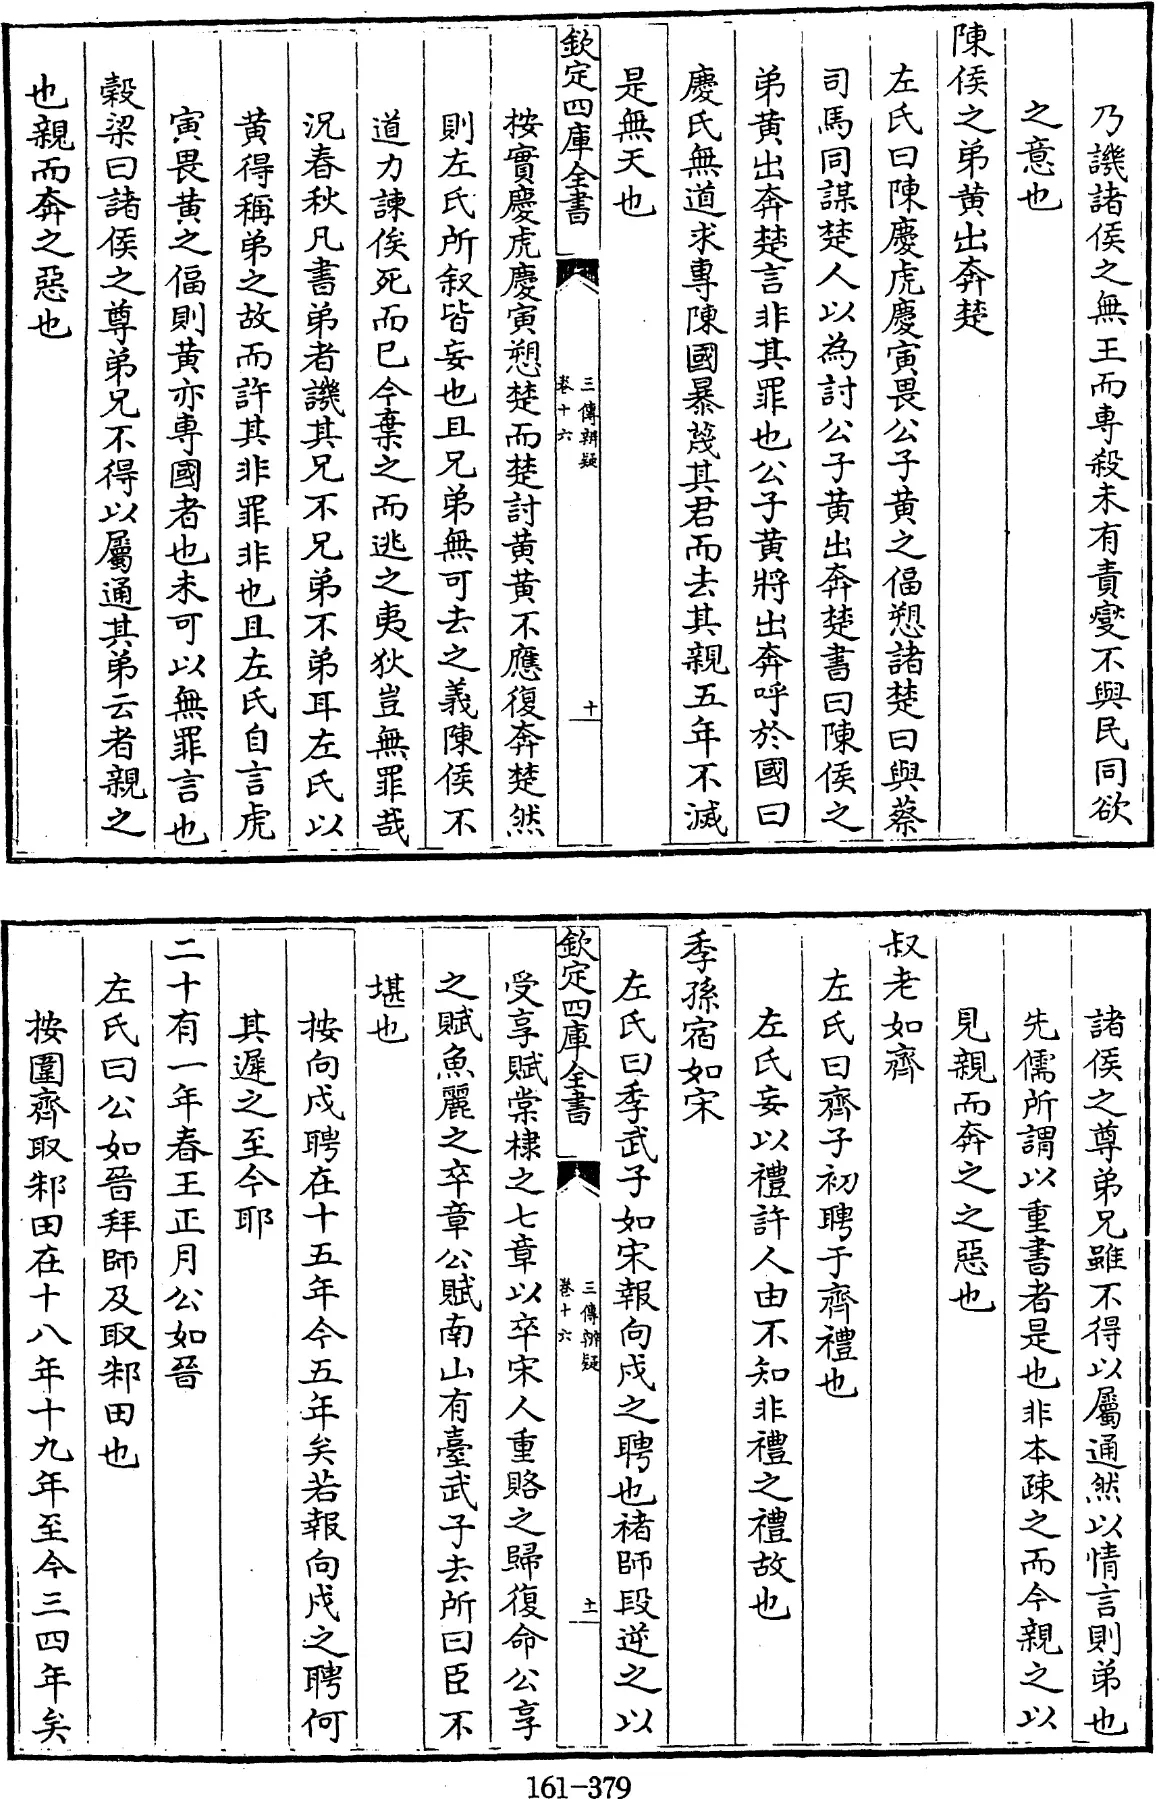 乃譏諸侯之無王而專殺未有責燮不與民同欲
之意也
陳侯之弟黄出奔楚
左氏曰陳慶虎慶寅畏公子黄之偪愬諸楚曰與蔡
司馬同謀楚人以為討公子黄出奔楚書曰陳侯之
弟黄出奔楚言非其罪也公子黄將出奔呼於國曰
慶氏無道求專陳國暴蔑其君而去其親五年不滅
是無天也
欽定四庫全書
三傳辨疑
卷十六
十
按實慶虎慶寅愬楚而楚討黄黄不應復奔楚然
則左氏所叙皆妄也且兄弟無可去之義陳侯不
道力諫俟死而已今棄之而逃之夷狄豈無罪哉
況春秋凡書弟者譏其兄不兄弟不弟耳左氏以
黄得稱弟之故而許其非罪非也且左氏自言虎
寅畏黄之偪則黄亦專國者也未可以無罪言也
穀梁曰諸侯之尊弟兄不得以屬通其弟云者親之
也親而奔之惡也
諸侯之尊弟兄雖不得以屬通然以情言則弟也
先儒所謂以重書者是也非本疎之而今親之以
見親而奔之之惡也
叔老如齊
左氏曰齊子初聘于齊禮也
左氏妄以禮許人由不知非禮之禮故也
季孫宿如宋
左氏曰季武子如宋報向戌之聘也褚師段逆之以
欽定四庫全書
三傳辨疑
卷十六
十一
受享賦棠棣之七章以卒宋人重賂之歸復命公享
之賦魚麗之卒章公賦南山有臺武子去所曰臣不
堪也
按向戌聘在十五年今五年矣若報向戌之聘何
其遲之至今耶
二十有一年春王正月公如晉
左氏曰公如晉拜師及取邾田也
按圍齊取邾田在十八年十九年至今三四年矣
161-379